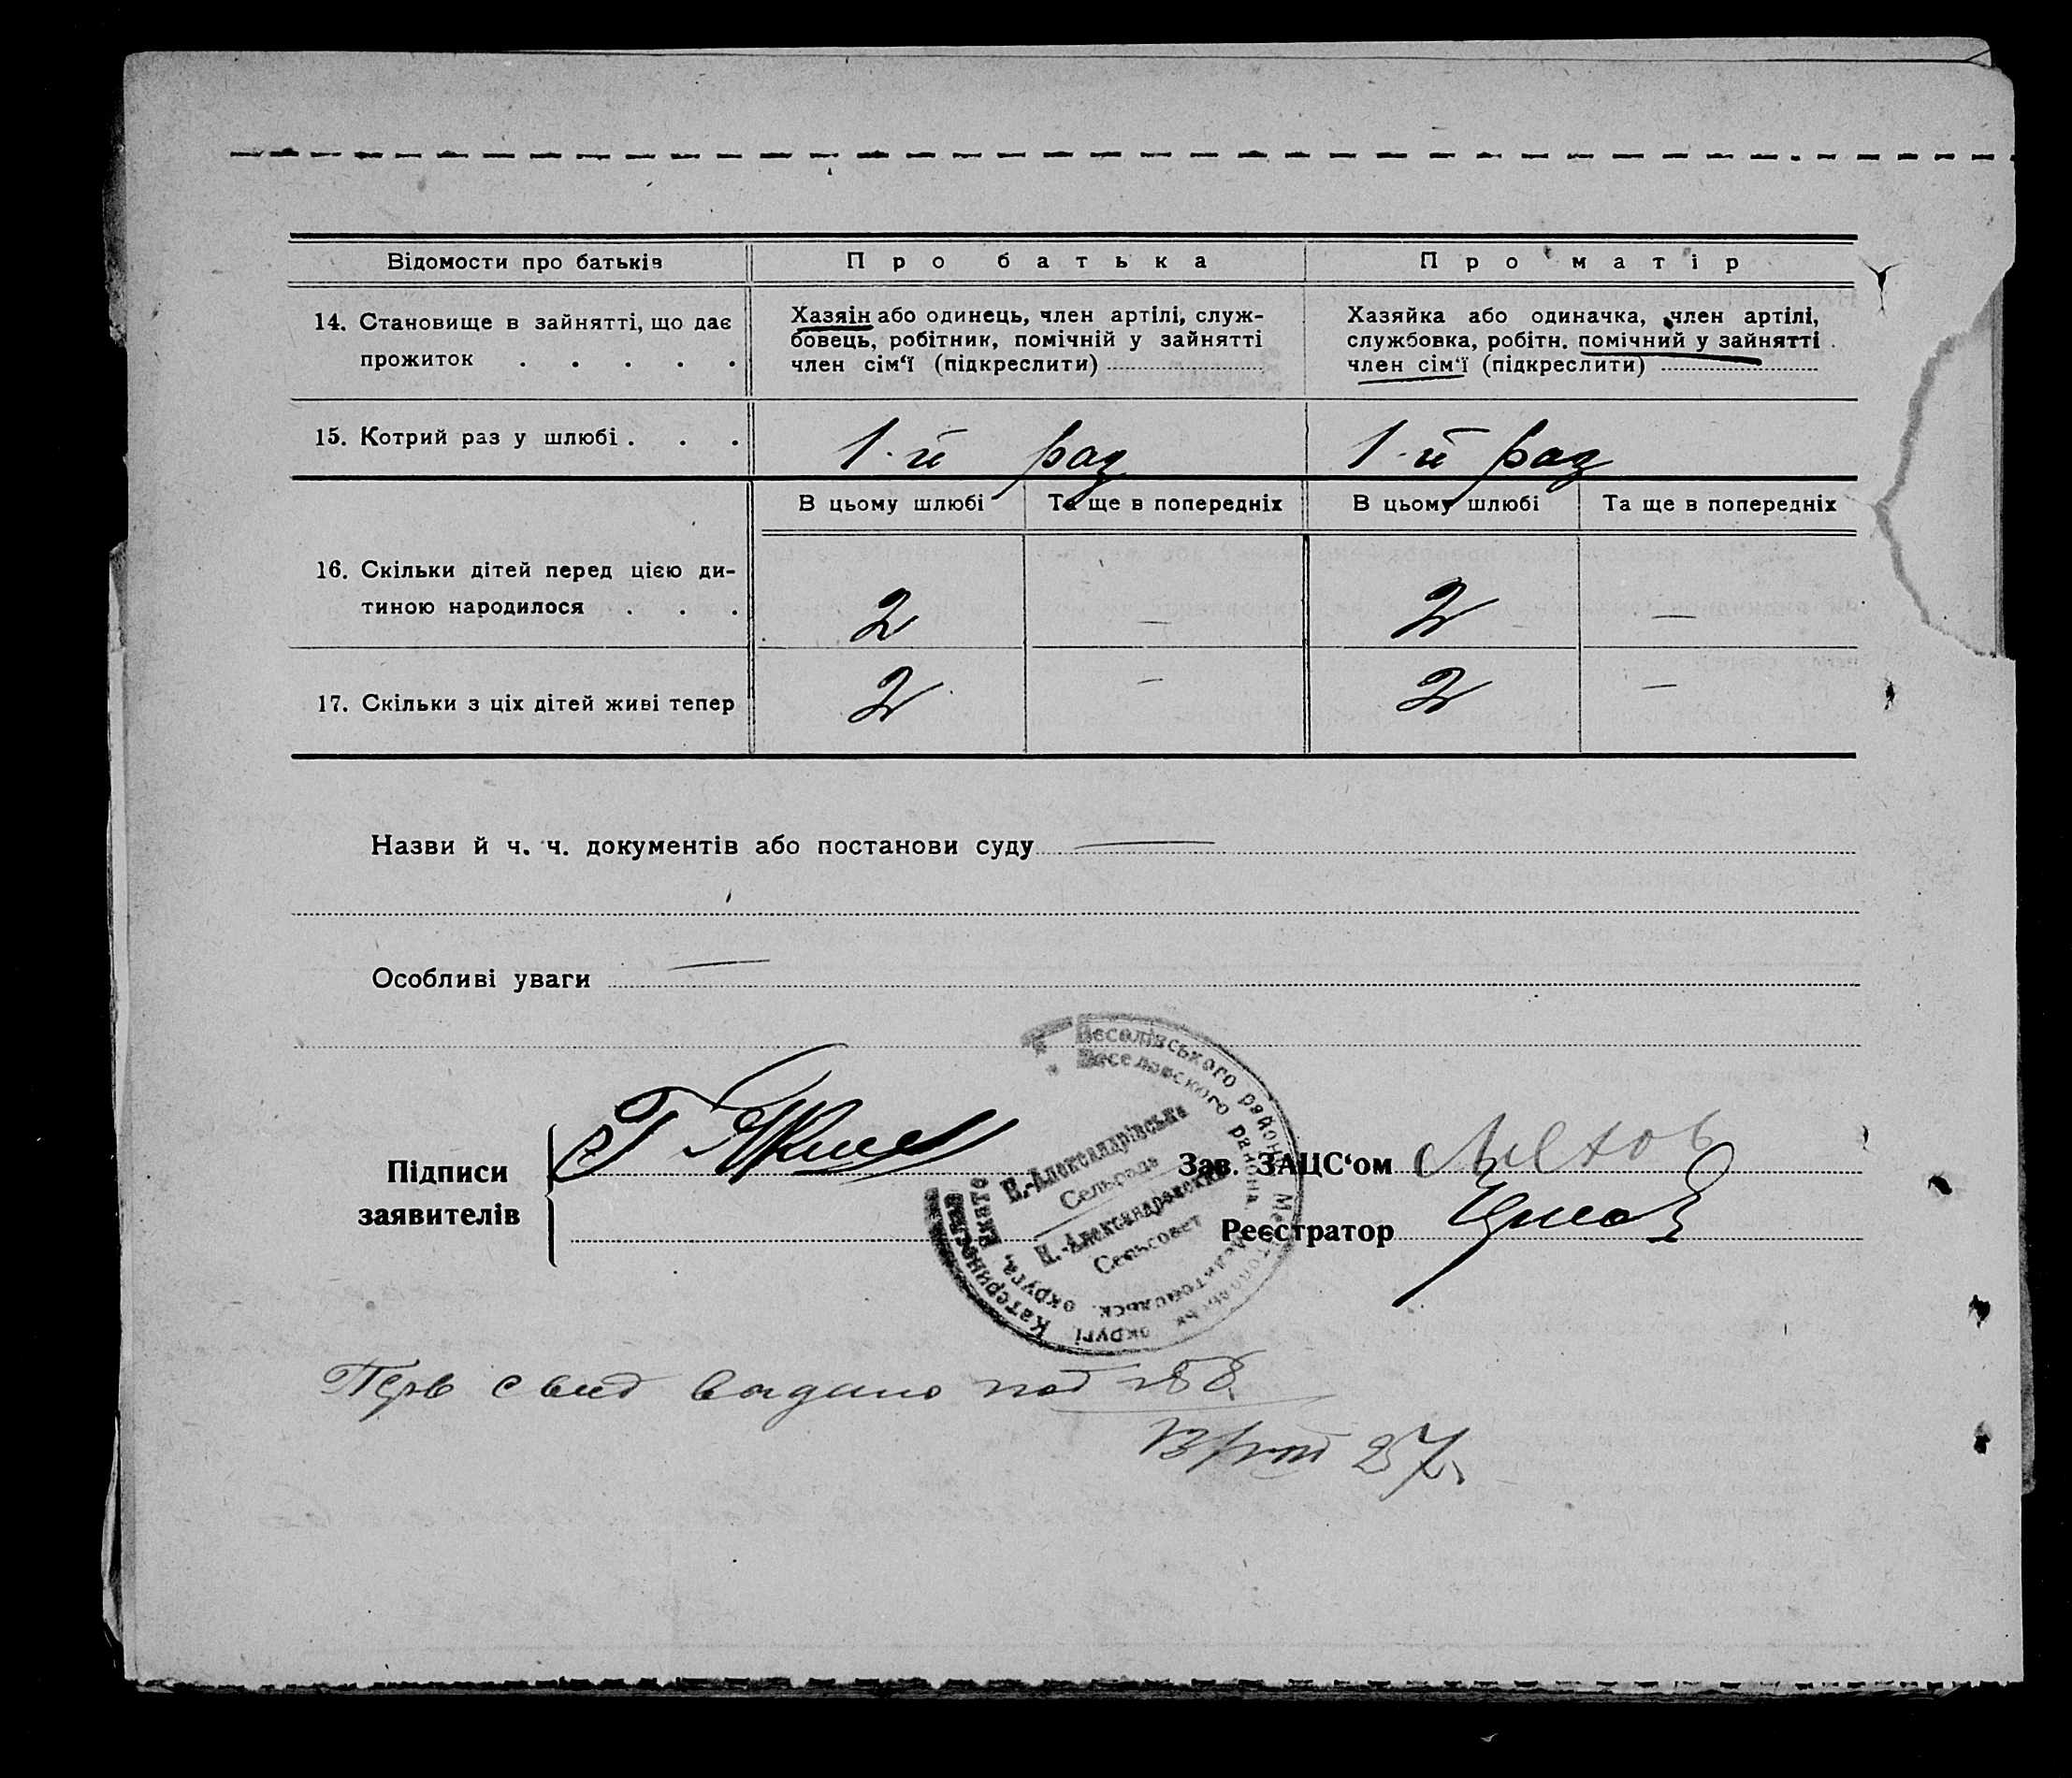 Відомости про батьків
Про батька
Про матір
14. Становище в зайнятті, що дає
прожиток . . . . .
Хазяін або одинець, член артілі, служ-
бовець, робітник, помічній у зайнятті
член сім‘ї (підкреслити)
Хазяйка або одиначка, член артілі,
службовка, робітн. помічний у зайнятті
член сім‘ї (підкреслити)
15. Котрий раз у шлюбі . . .
1-й раз
1-й раз
В цьому шлюбі
Та ще в попередніх
В цьому шлюбі
Та ще в попередніх
16. Скільки дітей перед цією ди-
тиною народилося . . .
2
—
2
—
17. Скільки з ціх дітей живі тепер
2
—
2
—
Назви й ч. ч. документів або постанови суду —
Особливі уваги —
Підписи
заявителів
Веселівського району Мелітопольськ. округі, Катеринослав
Веселовского района, Мелитопольск. округа, Екато
Н.-Александрівська
Сельрада
Н.-Александровский
Сельсовет
Зав. ЗАЦС‘ом
Реєстратор
свид выдано под № 58.
27.